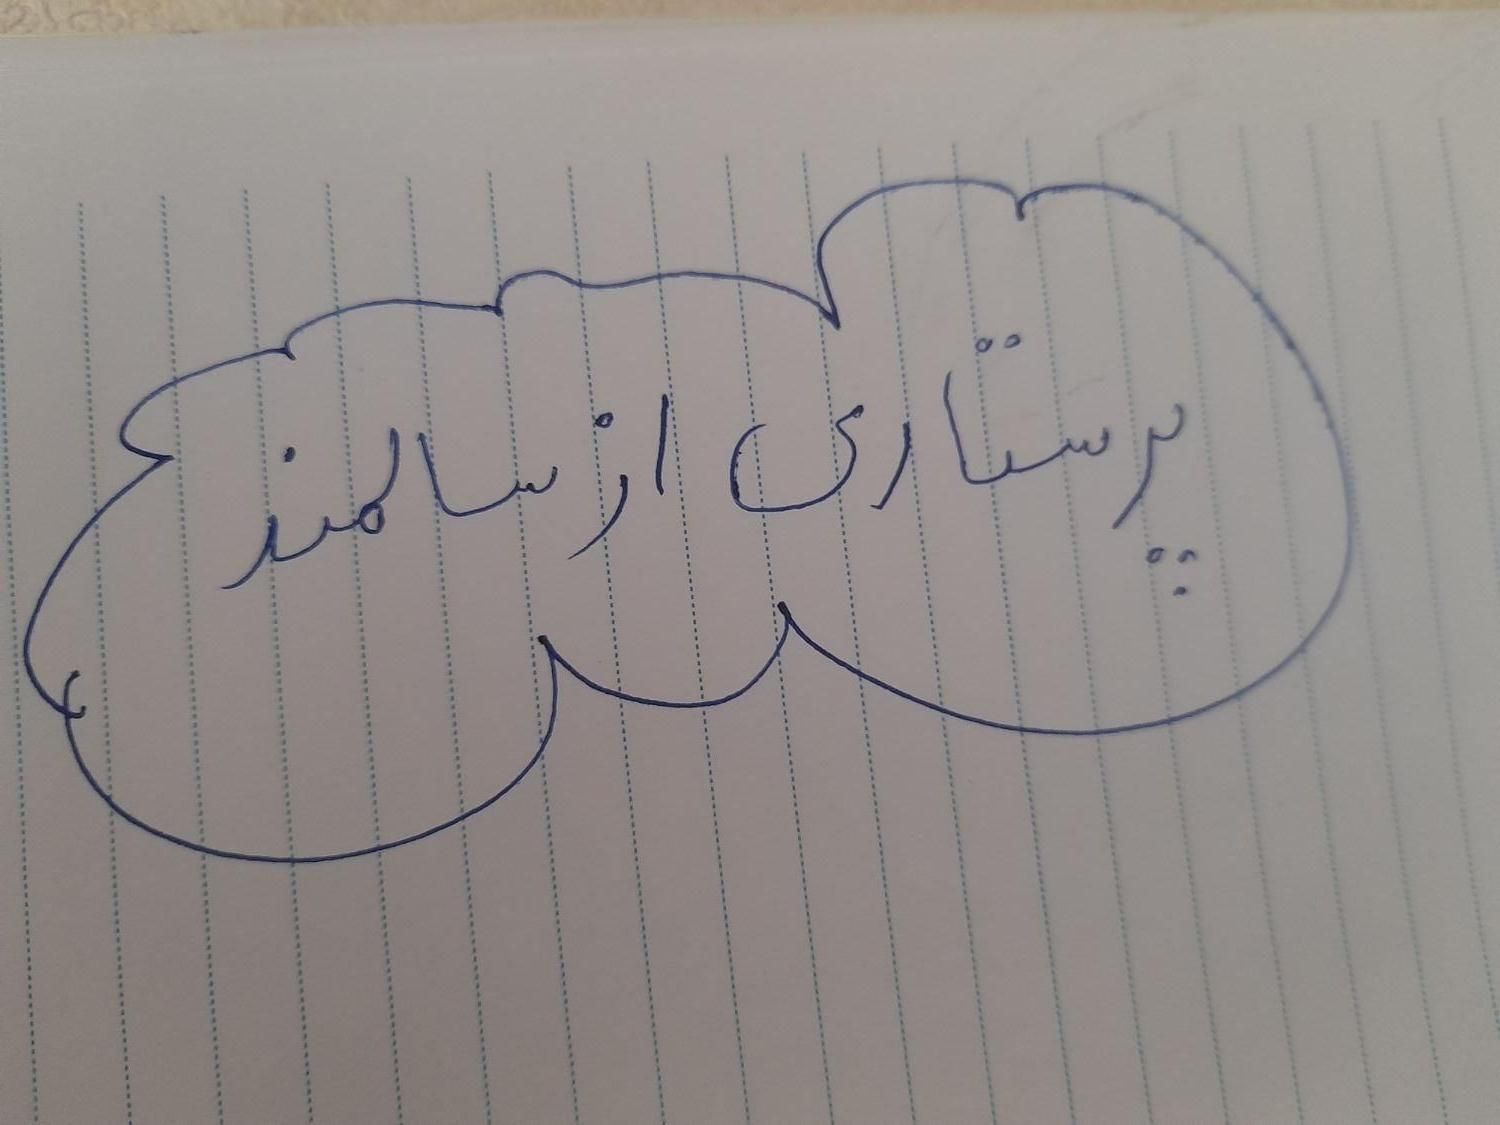 پرستاری از سالمند